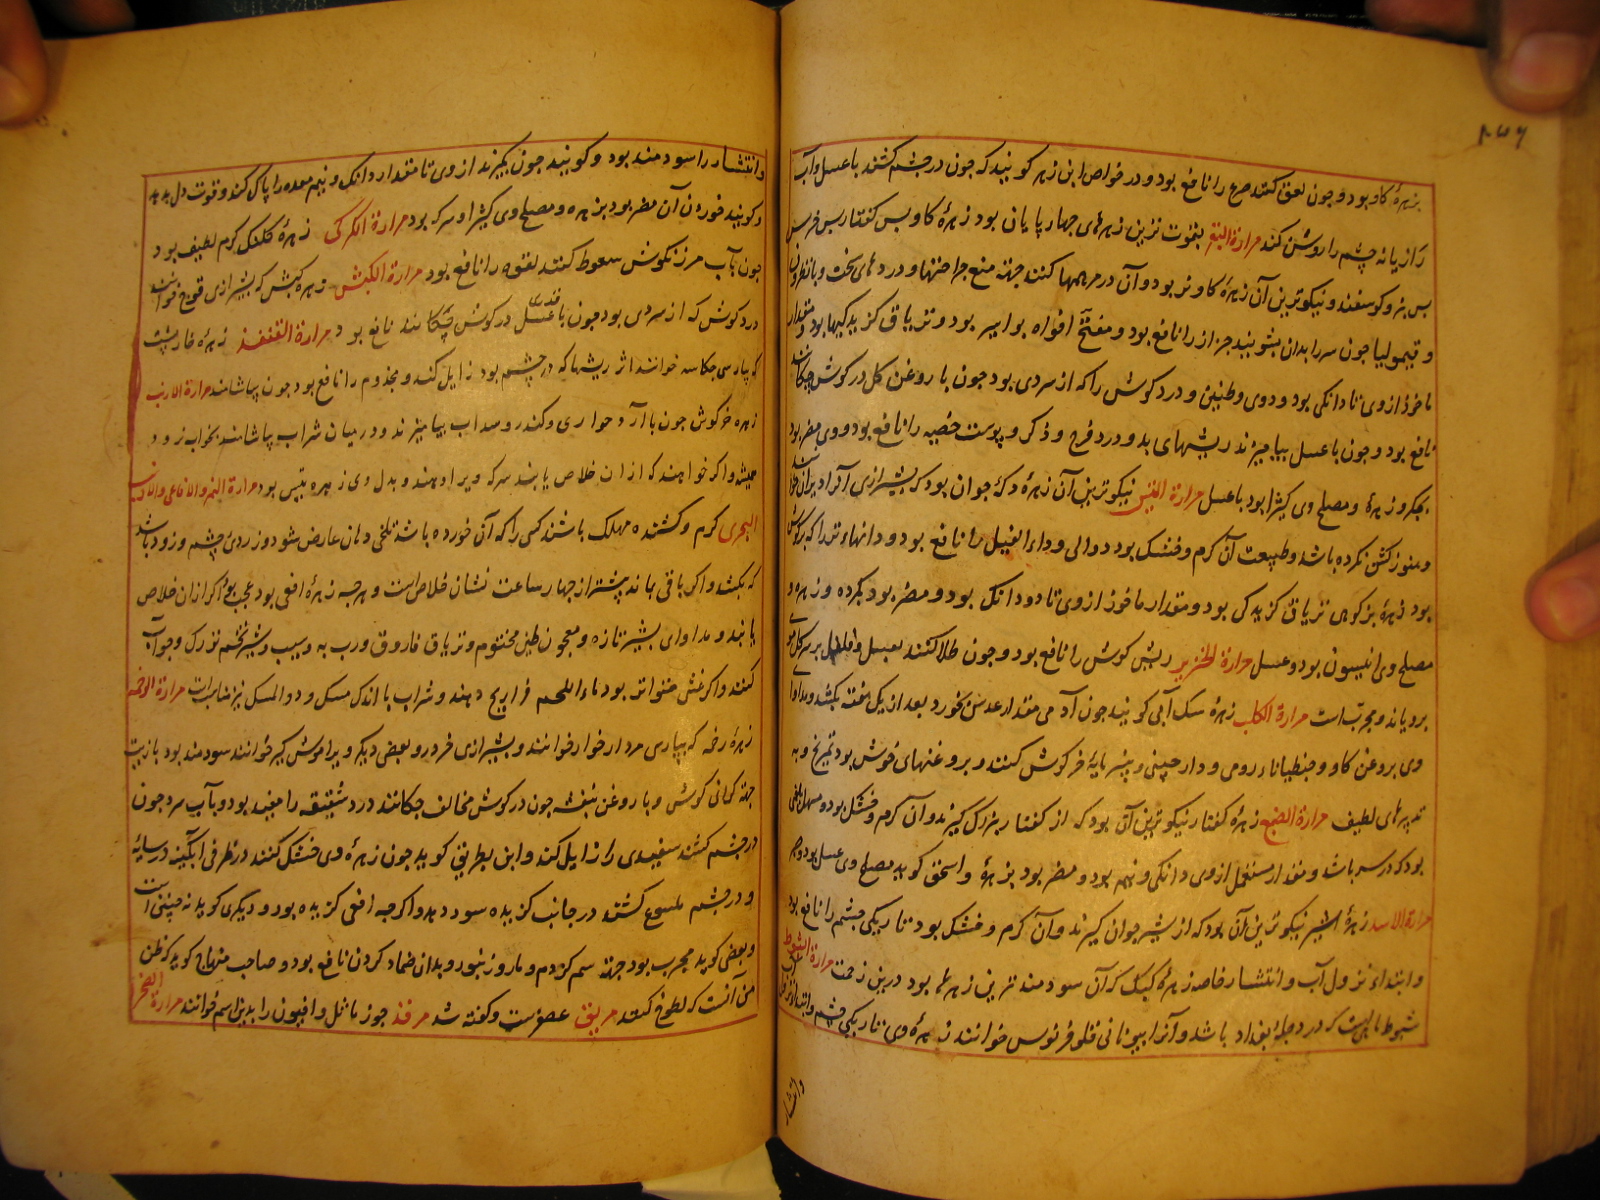 ۲۷۶
بزهرهٔ کاو بود و چون لعق کنند صرع را نافع بود و در خواص ابن زهر کویند که چون در چشم کشند با عسل و آب
رازیانه چشم را روشن کند مرارة البقر بقوت ترین زهرهای چهارپایان بود زهرهٔ کاو بس کفتار بس خرس
بس بز و کوسفند و نیکوترین آن زهرهٔ کاو نر بود و آن در مرهمها کنند جهته منع جراحتها و دردهای سخت و با نطرون
و قیمولیا چون سر را بدان بشویند حزاز را نافع بود و مفتح افواه بواسیر بود و تریاق کزیدکیها بود و مقدار
ماخوذ از وی تا دانکی بود و دوی و طنین و درد کوش را که از سردی بود چون با روغن کل در کوش چکانند
نافع بود و چون با عسل بیامیزند ریشهای بد و درد فرج و ذکر و پوست خصیه را نافع بود و وی مضر بود
بجکر و زهرهٔ و مصلح وی کثیرا بود با عسل مرارة التیس نیکوترین آن زهرهٔ دکهٔ جوان بود که بشیرازی آنرا
و هنوز کشن نکرده باشد و طبیعت آن کرم و خشک بود دوالی و داء الفیل را نافع بود و دانهاء تر را که بر کوش
بود زهرهٔ بز کوهی تریاق کزیدکی بود و مقدار ماخوذ از وی تا دو دانک بود و مضر بود بکرده و زهره و
مصلح وی انیسون بود و عسل مرارة الخنزیر ریش کوش را نافع بود و چون طلا کنند بعسل و فلفل بر سر کل موی
برویاند و مجربست مرارة الکلب زهرهٔ سک آبی کویند چون آدمی مقدار عدسی بخورد بعد از یک هفته بکشد و مداوا
وی بروغن کاو و جنطیانا رومی و دارچینی و پنیرمایهٔ خرکوش کنند و بروغنهای خوش بود تمریخ و به
تدبیرهای لطیف مرارة الضبع زهرهٔ کفتار نیکوترین آن بود که از کفتار بزرک کیرند و آن کرم و خشک بود و مسهل بلغمی
بود که در سر باشد و مقدار مستعمل از وی دانکی و نیم بود و مضر بود بزهرهٔ و اسحق کوید مصلح وی عسل بود
مرارة الاسد زهرهٔ شیر نیکوترین آن بود که از شیر جوان کیرند و آن کرم و خشک بود تاریکی چشم را نافع بود
و ابتداء نزول آب و انتشار خاصه زهرهٔ کبک که آن سودمندترین زهرها بود درین زحمت مرارة الشبوط
شبوط ماهیست که در دجلهٔ بغداد باشد و آنرا بیونانی قلوفرنوس خوانند زهرهٔ وی تاریکی چشم و ابتداء نزول آب
وانتشار
وانتشار را سودمند بود و کویند چون بکیرند از وی تا مقدار دانک و نیم معده را پاک کند و قوت دل بدهد
و کویند خوردن آن مضر بود بزهره و مصلح وی کثیرا و سرکه بود مرارة الکرکی زهرهٔ کلنک کرم لطیف بود
چون بآب مرزنکوش سعوط کنند لقوه را نافع بود مرارة الکبش زهرهٔ کبش که بشیرازی قوچ خوانند
درد کوش که از سردی بود چون با قدری عسل در کوش چکانند نافع بود مرارة القنفذ زهرهٔ خارپشت
که بپارسی جکاسه خوانند اثر ریشها که در چشم بود زایل کند و مجذوم را نافع بود چون بیاشامند مرارة الارنب
زهره خرکوش چون با آرد حواری و کندر و سداب بیامیزند و در میان شراب بیاشامند بخواب رود و
همیشه و اکر خواهند که از ان خلاص یابند سرکه ویرا دهند و بدل وی زهره تیس بود مرارة النمر والافاعی والارنب
البحری کرم و کشنده مهلک باشند کسی را که آن خورده باشد تلخی دهان عارض شود و زردی چشم و زود باشد
که بکشد و اکر باقی ماند پیشتر از چهار ساعت نشان خلاص است و هر چه زهرهٔ افعی بود عجب بود اکر از ان خلاص
یابند و مداوای بشیر تازه و معجون طین مختوم و تریاق فاروق و رب به و سیب و شیر تخم تورک و جوآب
کنند و اکر غش متواتر بود ماء اللحم فراریج دهند و شراب با اندک مسک و دواء المسک نیز مناسبست مرارة الرخمه
زهرهٔ رخمه که بپارسی مردارخوار خوانند و بشیرازی خردر و بعضی دیکر ویرا موش کیر خوانند سودمند بود با زیت
جهته کرانی کوش و با روغن بنفشه چون در کوش مخالف چکانند درد شقیقه را مفید بود و بآب سرد چون
در چشم کشند سفیدی را زایل کند و ابن بطریق کوید چون زهرهٔ وی خشک کنند در ظرفی آبکینه در سایهٔ
و در چشم ملسوع کشند در جانب کزیده سود دهد و اکر چه افعی کزیده بود و دیکری کوید نه چنینست
و بعضی کوید مجرب بود جهته سم کژدم و مار و زنبور و بدان ضماد کردن نافع بود و صاحب منهاج کوید که ظن
من آنست که لطوخ کنند مریق عصفرست و کفته شد مرقد جوز ماثل و افیون را بدین اسم خوانند مرارة الصخر